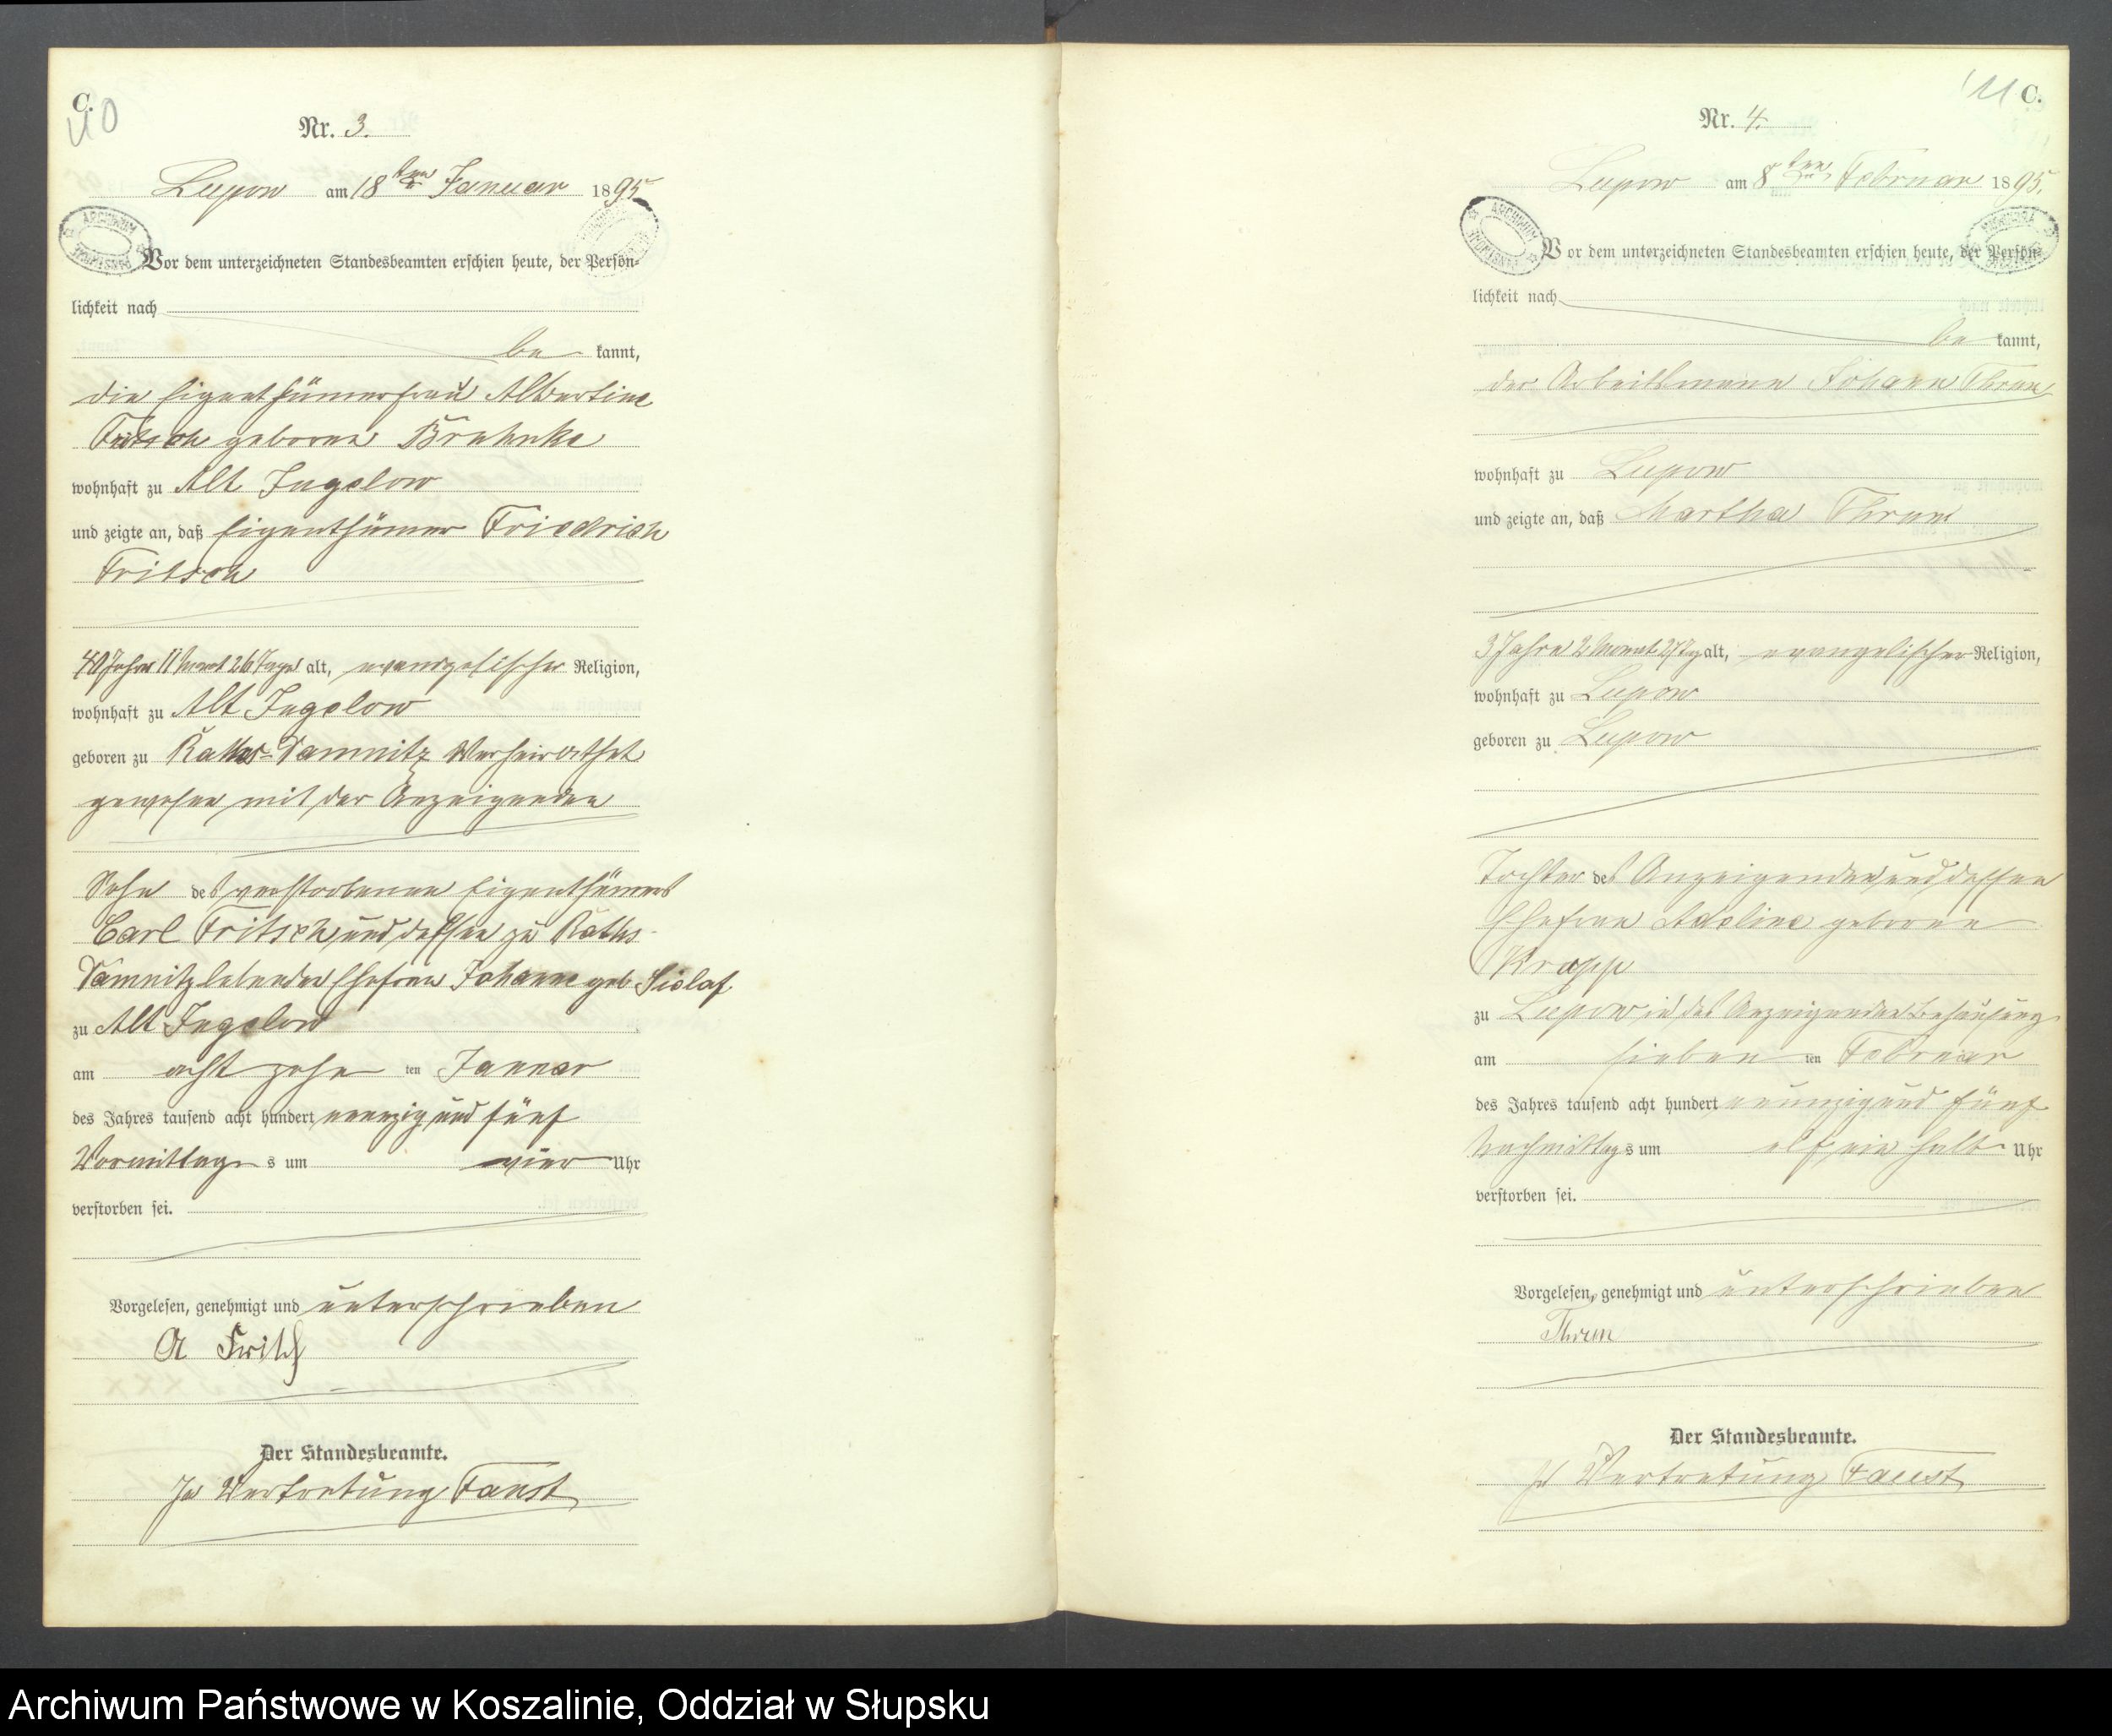 C.
40
Nr. 3.
Lupow am 18ten Januar 1895
Vor dem unterzeichneten Standesbeamten erschien heute, der Persön-
lichkeit nach
be kannt,
die Eigenthümerfrau Albertine
Fritsch geborne
wohnhaft zu Alt Jugelow
und zeigte an, daß Eigenthümer Friedrich
Fritsch
Jahre 11 Monat 26 Tage alt, evangelischer Religion,
wohnhaft zu Alt Jugelow
geboren zu Raths-Damnitz verheirathet
gewesen mit der Anzeigenden
Sohn des verstorbenen Eigenthümers
Carl Fritsch und dessen zu Raths-
Damnitz lebenden Ehefrau Johanne geb. Sielaf
zu Alt Jugelow
am acht zehn ten Januar
des Jahres tausend acht hundert neunzig und fünf
Vormittag s um vier Uhr
verstorben sei.
Vorgelesen, genehmigt und unterschrieben
A Fritsch
Der Standesbeamte.
In Vertretung Faust
C.
Nr. 4.
Lupow am 8ten Februar 1895.
Vor dem unterzeichneten Standesbeamten erschien heute, der Persön-
lichkeit nach
be kannt,
der Arbeitsmann Johann Thrun
wohnhaft zu Lupow
und zeigte an, daß Martha Thrun
3 Jahre 2 Monat 27 Tg alt, evangelischer Religion,
wohnhaft zu Lupow
geboren zu Lupow
Tochter des Anzeigenden und dessen
Ehefrau Adeline geborne
Kropp
zu Lupow in des Anzeigenden Behausung
am sieben ten Februar
des Jahres tausend acht hundert neunzig und fünf
Nachmittag s um elf ein halb Uhr
verstorben sei.
Vorgelesen, genehmigt und unterschrieben
Thrun
Der Standesbeamte.
In Vertretung Faust
Archiwum Państwowe w Koszalinie, Oddział w Słupsku